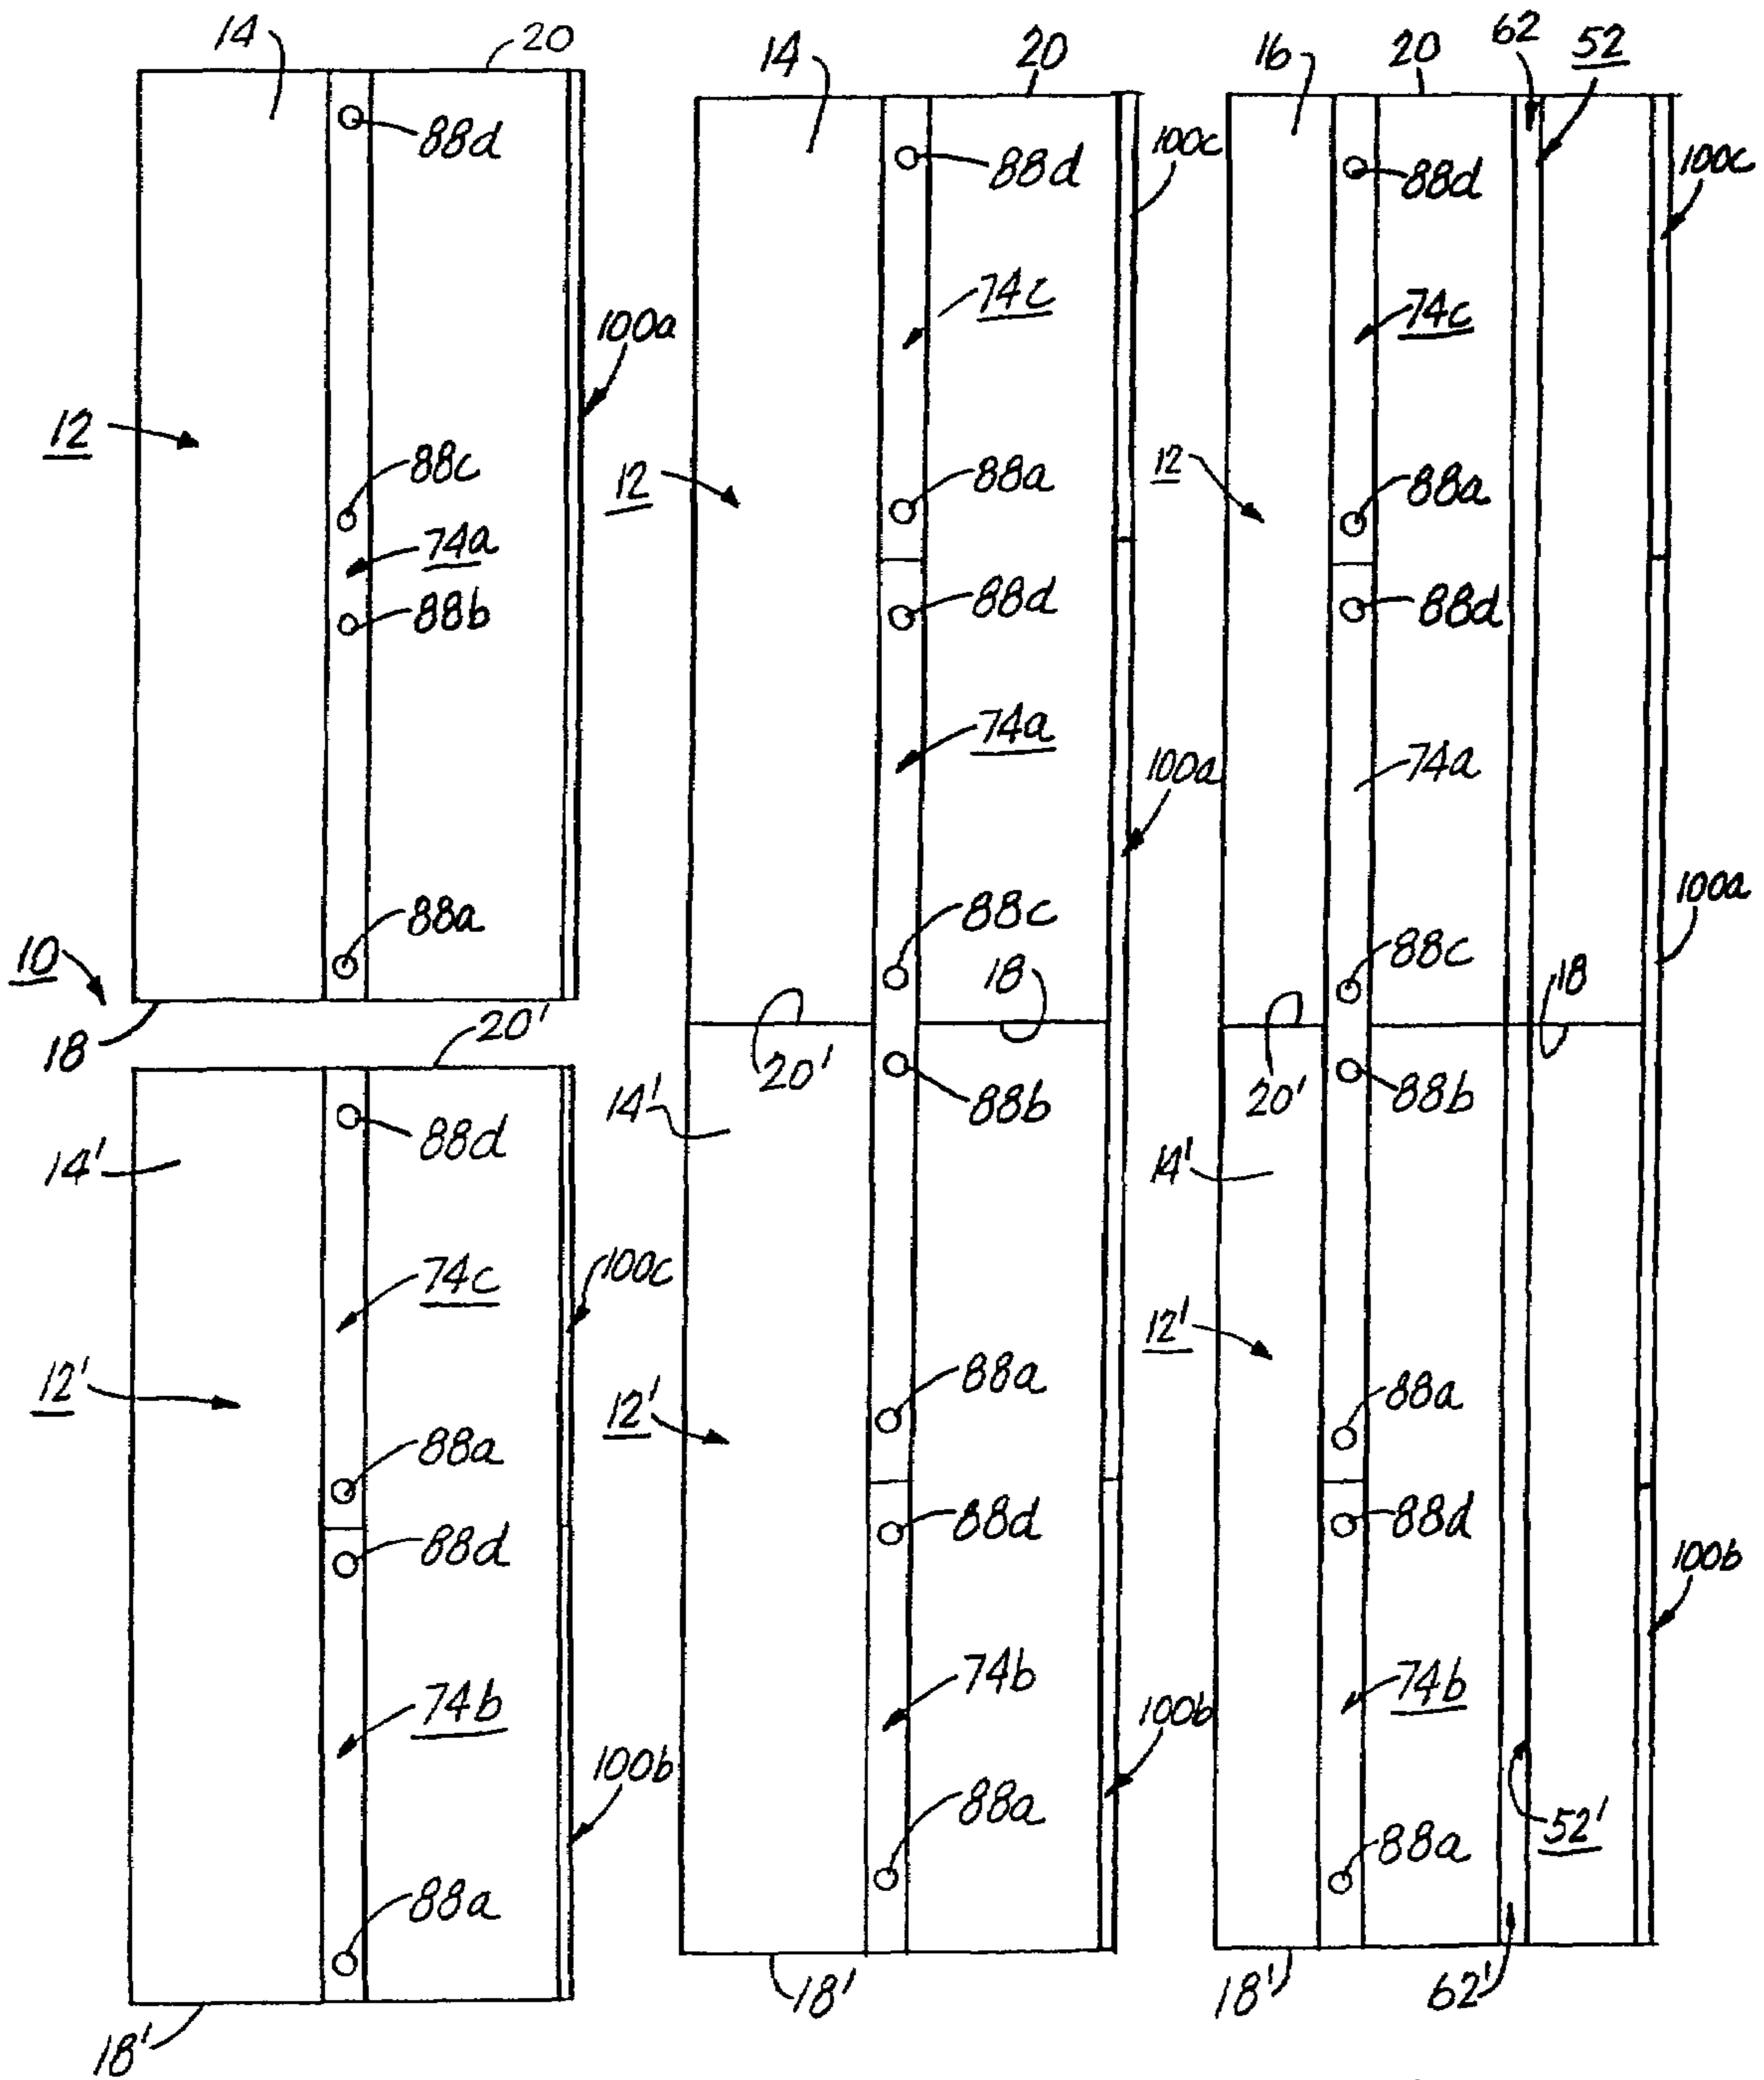 14
20
88d
100a
12
88c
74a
88b
88a
10
18
20'
14'
88d
74c
100c
12'
88a
88d
74b
100b
88a
18'
14
20
88d
100c
74c
12
88a
88d
74a
100a
88c
18
20'
14'
88b
88a
12'
88d
74b
100b
88a
18'
16
20
62
52
100c
88d
74c
12
88a
88d
74a
100a
88c
18
20'
88b
14'
12'
88a
88d
100b
74b
52'
88a
18'
62'